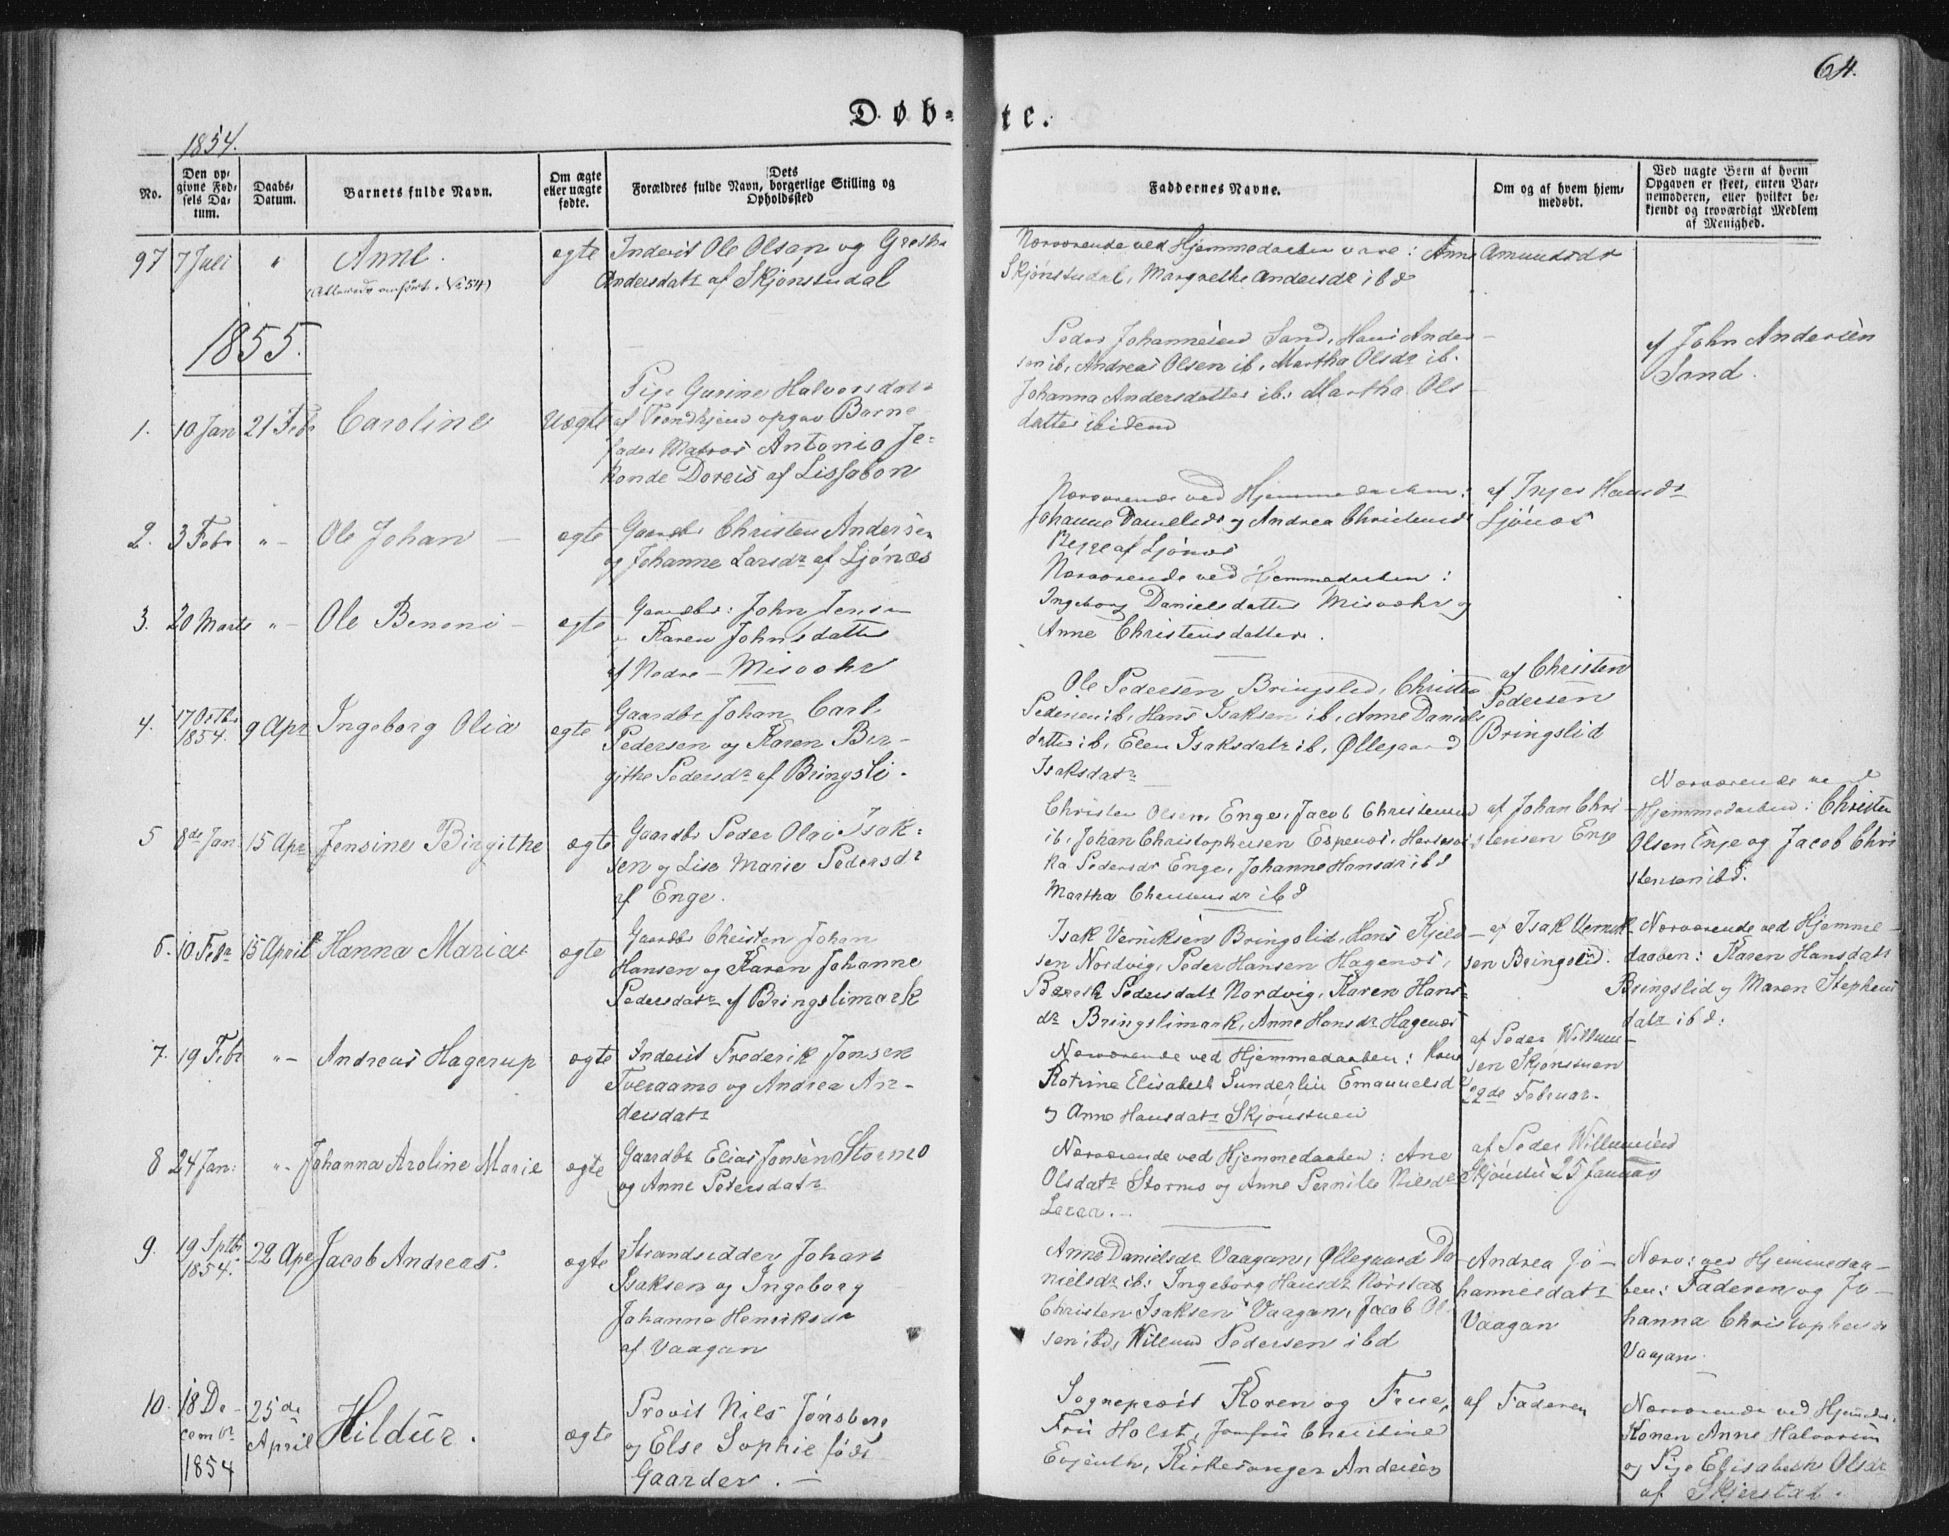 64.
Døb-te.
1854.
No.
Den op-
givne Fød-
sels Da-
tum.
Daabs-
Datum.
Barnets fulde Navn.
Om ægte
eller uægte
fødte.
Dets
Forældres fulde Navn, borgerlige Stilling og
Opholdssted
Faddernes Navne.
Om og af hvem hjem-
medøbt.
Ved uægte Børn af hvem
Opgaven er skeet, enten Bar-
nemoderen, eller hvilket be-
kjendt og troværdigt Medlem
af Menighed.
97 7 Juli " Anne.
(Allerede anført No 54)
egte
Inderst Ole Olsen og Grethe
Andersdatr af Skjønstudal
Nærværende ved Hjemmedaaben vare: Anne Amundsdr
Skjønstudal, Margrethe Andersdr ibd
1855.
1. 10 Jan 21 Febr Caroline
Uægte
Pige Gurine Halvorsdatr
af Trondhjem opgav Barne-
fader Matros Antonio Je-
konde Doreis af Lissabon
Peder Johannesen Sand, Hans Ander-
sen ib, Andreas Olsen ib, Martha Olsdr ib.
Johanna Andersdatter ib. Martha Ols-
datter ibidem
af John Andersen
Sand.
2. 3 Febr " - Ole Johan -
egte
Gaardbr Christen Andersen
og Johanne Larsdr af Ljønæs
Nærværende ved Hjemmedaaben:
Johanne Danielsdr og Andrea Christensdr
Begge af Ljønæs
af Inger Hansdr
Ljønæs
3. 20 Marts " - Ole Benoni -
egte
Gaardbr: John Jensen
og Karen Johnsdatter
af Nedre - Misvæhr
Nærværende ved Hjemmedaaben:
Ingeborg Danielsdatter Misvæhr og
Anne Christensdatter.
4. 17 Octbr
1854. 9 Apr Ingeborg Olia
egte
Gaardbr Johan Carl
Pedersen og Karen Bir-
githe Pedersdr af Bringsli.
Ole Pedersen Bringslid, Christen
Pedersen ib, Hans Isaksen ib, Anne Daniels-
datter ib, Elen Isaksdatr ib, Øllegaard
Isaksdatr
af Christen
Pedersen
Bringslid
5 8de Jan 15 Apr Jensine Birgithe
egte
Gaardbr Peder Olai Isak-
sen og Lise Marie Pedersdr
af Enge.
Christen Olsen Enge, Jacob Christensen
ib, Johan Christophersen Espenæs,
Pedersdr Enge, Johanne Hansdr ibd
Martha ibd
af Johan Chri-
stensen Enge
Nærværende ved
Hjemmedaaben: Christen
Olsen Enge og Jacob Chri-
stensen ibd.
6. 10 Febr 15 April Hanna Maria
egte
Gaardbr Christen Johan
Hansen og Karen Johanne
Pedersdatr af Bringslimark
Isak Bringslid, Hans Kjeld-
sen Nordvig, Peder Hansen Hagenæs,
Pedersdatr Nordvig, Karen Hans-
dr Bringslimark, Anne Hansdr Hagenæs
af Isak
sen Bringslid.
Nærværende ved Hjemme-
daaben: Karen Hansdatr
Bringslid og Maren Stephens-
datr ibd.
7. 19 Febr " - Andreas Hagerup
egte
Inderst Frederik Jonsen
Tveraamo og Andrea An-
dersdatr
Nærværende ved Hjemmedaaben: Kone
Katrine Elisabeth Sunderlin Emanuelsdr
og Anne Hansdatr Skjønstuen
af Peder Willum-
sen Skjønstuen
22de Februar.
8 24 Jan: " - Johanna Aroline Marie
egte
Gaardbr Elias Jonsen Stormo
og Anne Pedersdatr
Nærværende ved Hjemmedaaben: Ane
Olsdatr Stormo og Anne Pernille Nielsdr
af Peder Willumsen
Skjønstu 25 Januar
9. 19 Sptbr
1854. 22 Apr Jacob Andreas.
egte
Strandsidder Johan
Isaksen og Ingeborg
Johanna Henriksdr
af Vaagan
Anne Danielsdr Vaagan, Øllegaard Da-
nielsdr ib: Ingeborg Hansdr Nørstad,
Christen Isaksen Vaagan, Jacob Ol-
sen ibd, Willum Pedersen ibd
Andrea Jo-
hannesdatr
Vaagan
Nærv: ved Hjemmedaa-
ben: Faderen og Jo-
hanna Christophersdr
Vaagan.
10. 18 De-
cembr
1854
25de
April
Hildur.
egte
Provst Nils Jønsberg
og Else Sophie født
Gaarder. -
Sogneprest Koren og Frue,
Fru Holst, Jomfru Christine
Evjenth, Kirkesanger Andersen
af Faderen
Nærværende ved Hjemmed:
Konen Anne Halvorsen
og Pige Elisabeth Olsdr
af Skjerstad.